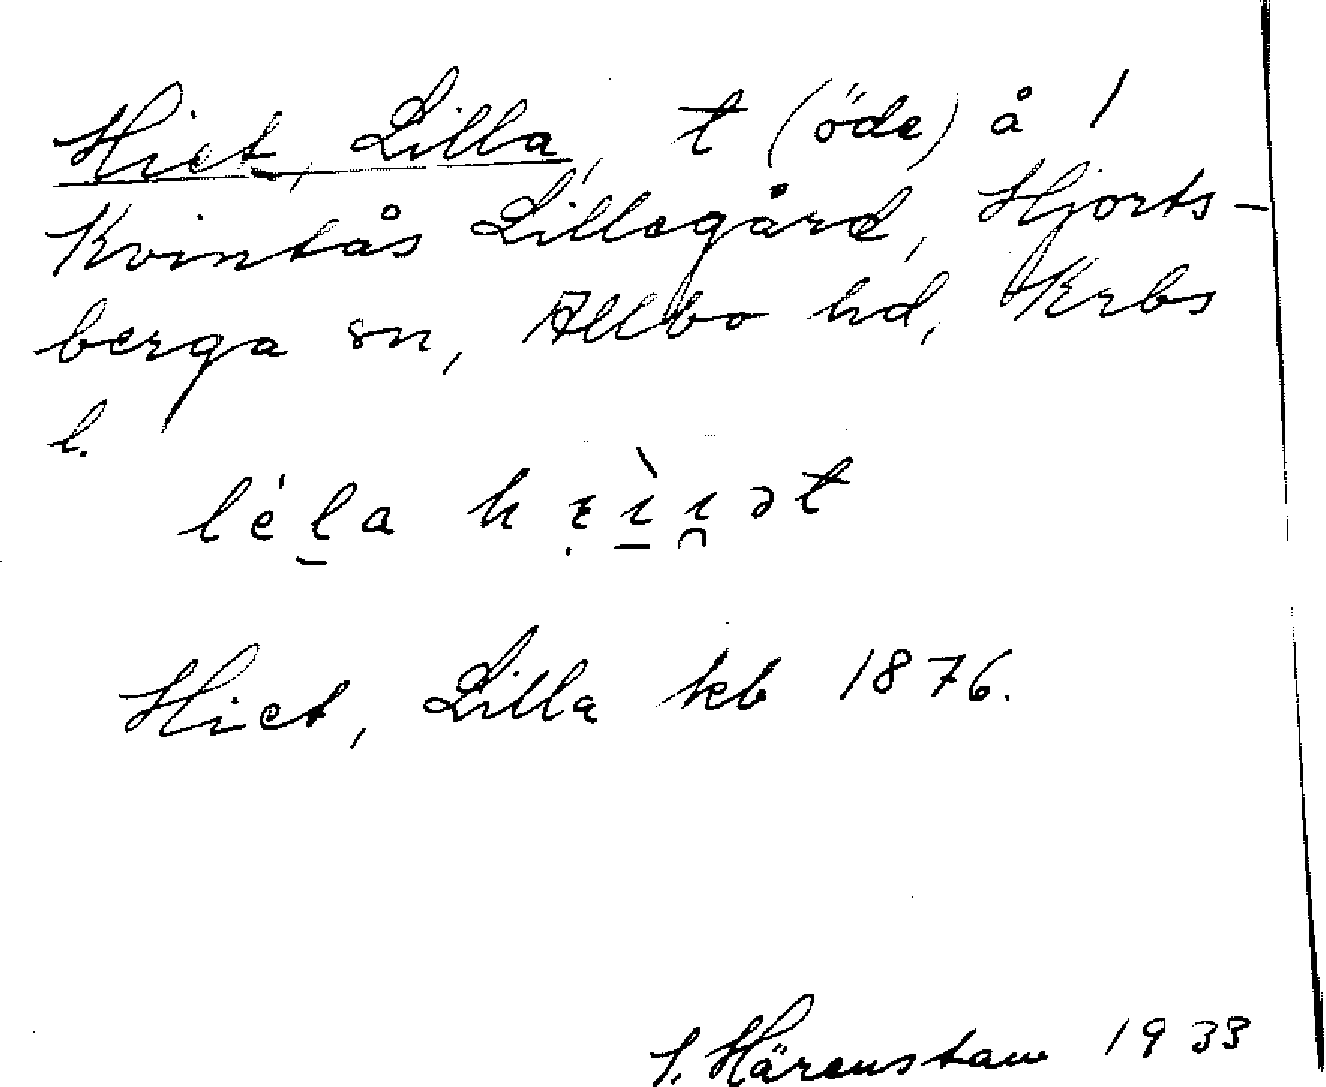 Hiet, Lilla, t (öde) å 1
Kvintås Lillegård, Hjorts-
berga sn, Allbo hd, Krbs
l.
léla hɛ̣ìı̯ət
Hiet, Lilla kb 1876.
S. Härenstam 1933